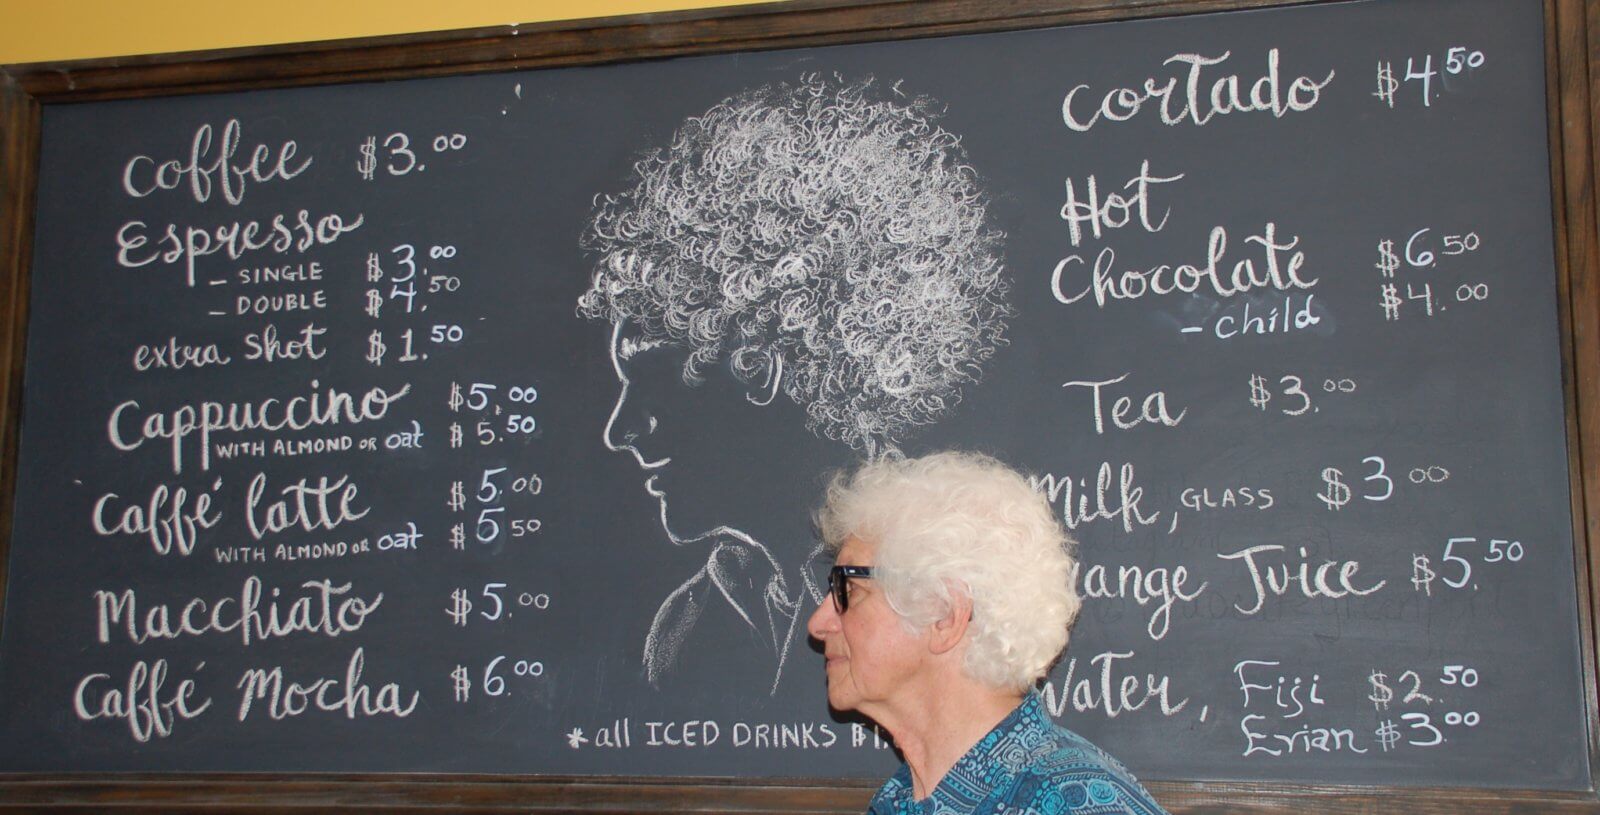 Coffee $3.00
Espresso
- SINGLE $3.00
- DOUBLE $4.50
extra shot $1.50
Cappuccino $5.00
WITH ALMOND OR oat $5.50
Caffé latte $5.00
WITH ALMOND OR oat $5.50
Macchiato $5.00
Caffé Mocha $6.00
*all ICED DRINKS $1.
Cortado $4.50
Hot
Chocolate $6.50
- child $4.00
Tea $3.00
Milk, GLASS $3.00
Juice $5.50
Water, Fiji $2.50
Evian $3.00